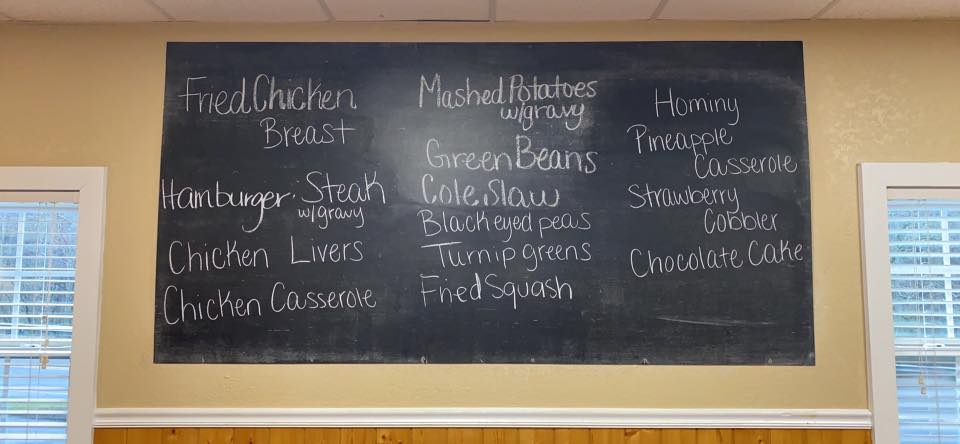 Fried Chicken
Breast
Hamburger Steak
w/gravy
Chicken Livers
Chicken Casserole
Mashed Potatoes
w/gravy
Green Beans
Cole Slaw
Black eyed peas
Turnip greens
Fried Squash
Hominy
Pineapple
Casserole
Strawberry
Cobbler
Chocolate Cake